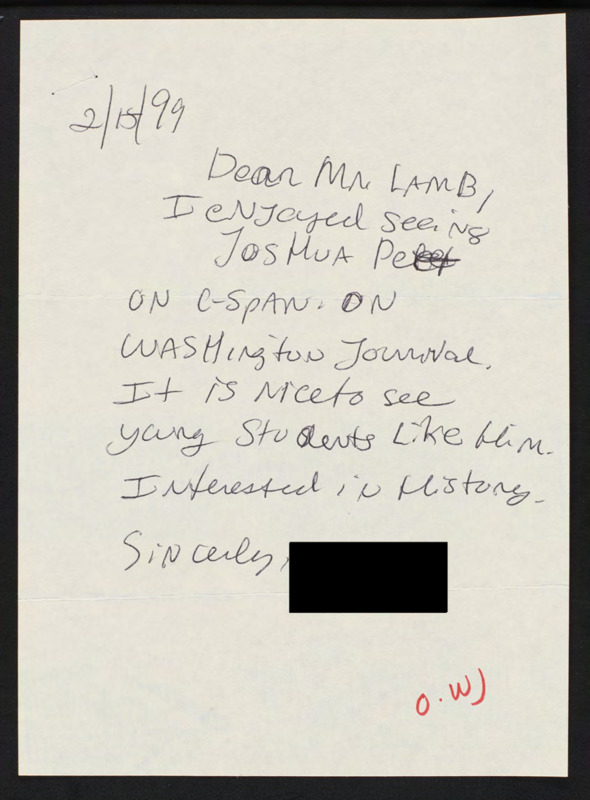 2/15/99
Dear Mr. LAMB,
I enjoyed seeing
JOSHUA
ON C-SPAN. ON
WASHington Journal.
It is Nice to see
young Students Like Him.
Interested in History.
Sincerly,
O.WJ